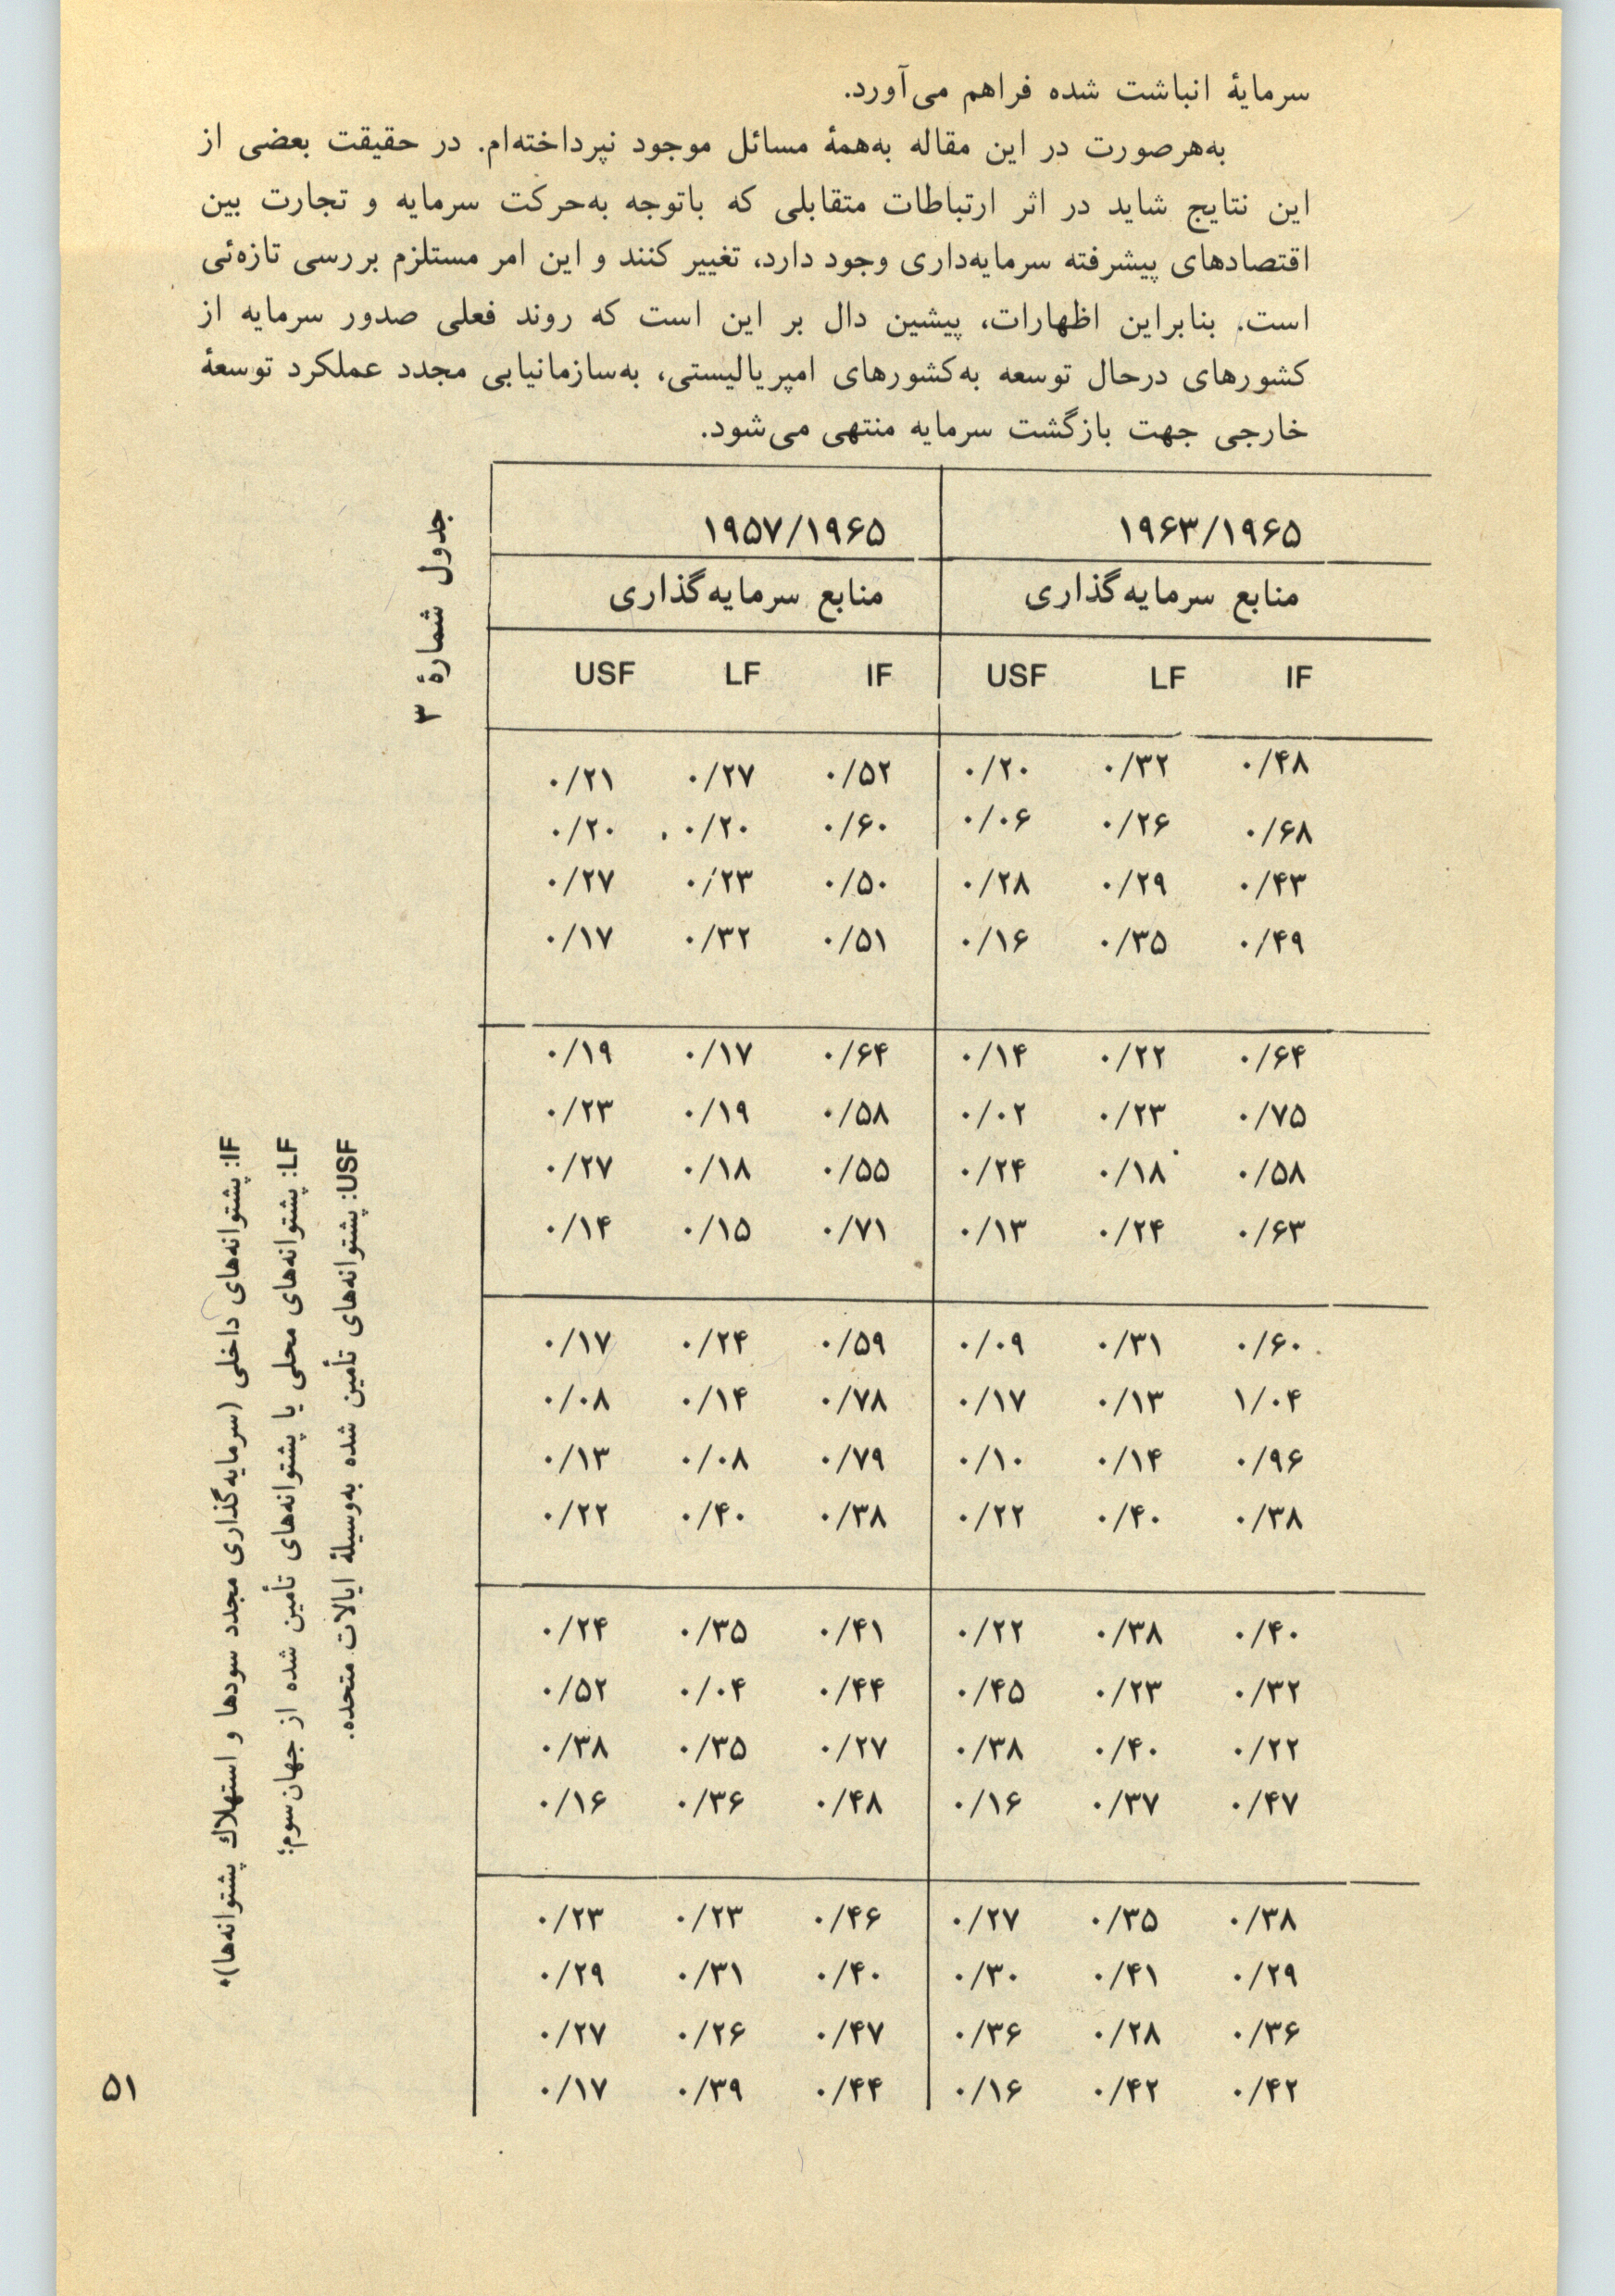 سرمایهٔ انباشت شده فراهم می‌آورد.
به‌هرصورت در این مقاله به‌همهٔ مسائل موجود نپرداخته‌ام. در حقیقت بعضی از
این نتایج شاید در اثر ارتباطات متقابلی که باتوجه به‌حرکت سرمایه و تجارت بین
اقتصادهای پیشرفته سرمایه‌داری وجود دارد، تغییر کنند و این امر مستلزم بررسی تازه‌ئی
است. بنابراین اظهارات، پیشین دال بر این است که روند فعلی صدور سرمایه از
کشورهای درحال توسعه به‌کشورهای امپریالیستی، به‌سازمانیابی مجدد عملکرد توسعهٔ
خارجی جهت بازگشت سرمایه منتهی می‌شود.
جدول شمارهٔ ۳
۱۹۵۷/۱۹۶۵ ۱۹۶۳/۱۹۶۵
منابع سرمایه‌گذاری منابع سرمایه‌گذاری
USF LF IF USF LF IF
۰/۲۱ ۰/۲۷ ۰/۵۲ ۰/۲۰ ۰/۳۲ ۰/۴۸
۰/۲۰ ۰/۲۰ ۰/۶۰ ۰/۰۶ ۰/۲۶ ۰/۶۸
۰/۲۷ ۰/۲۳ ۰/۵۰ ۰/۲۸ ۰/۲۹ ۰/۴۳
۰/۱۷ ۰/۳۲ ۰/۵۱ ۰/۱۶ ۰/۳۵ ۰/۴۹
۰/۱۹ ۰/۱۷ ۰/۶۴ ۰/۱۴ ۰/۲۲ ۰/۶۴
۰/۲۳ ۰/۱۹ ۰/۵۸ ۰/۰۲ ۰/۲۳ ۰/۷۵
۰/۲۷ ۰/۱۸ ۰/۵۵ ۰/۲۴ ۰/۱۸ ۰/۵۸
۰/۱۴ ۰/۱۵ ۰/۷۱ ۰/۱۳ ۰/۲۴ ۰/۶۳
۰/۱۷ ۰/۲۴ ۰/۵۹ ۰/۰۹ ۰/۳۱ ۰/۶۰
۰/۰۸ ۰/۱۴ ۰/۷۸ ۰/۱۷ ۰/۱۳ ۱/۰۴
۰/۱۳ ۰/۰۸ ۰/۷۹ ۰/۱۰ ۰/۱۴ ۰/۹۶
۰/۲۲ ۰/۴۰ ۰/۳۸ ۰/۲۲ ۰/۴۰ ۰/۳۸
۰/۲۴ ۰/۳۵ ۰/۴۱ ۰/۲۲ ۰/۳۸ ۰/۴۰
۰/۵۲ ۰/۰۴ ۰/۴۴ ۰/۴۵ ۰/۲۳ ۰/۳۲
۰/۳۸ ۰/۳۵ ۰/۲۷ ۰/۳۸ ۰/۴۰ ۰/۲۲
۰/۱۶ ۰/۳۶ ۰/۴۸ ۰/۱۶ ۰/۳۷ ۰/۴۷
۰/۲۳ ۰/۲۳ ۰/۴۶ ۰/۲۷ ۰/۳۵ ۰/۳۸
۰/۲۹ ۰/۳۱ ۰/۴۰ ۰/۳۰ ۰/۴۱ ۰/۲۹
۰/۲۷ ۰/۲۶ ۰/۴۷ ۰/۳۶ ۰/۲۸ ۰/۳۶
۰/۱۷ ۰/۳۹ ۰/۴۴ ۰/۱۶ ۰/۴۲ ۰/۴۲
USF: پشتوانه‌های تأمین شده به‌وسیلهٔ ایالات متحده.
LF: پشتوانه‌های محلی یا پشتوانه‌های تأمین شده از جهان‌سوم؛
IF: پشتوانه‌های داخلی (سرمایه‌گذاری مجدد سودها و استهلاك پشتوانه‌ها).
۵۱